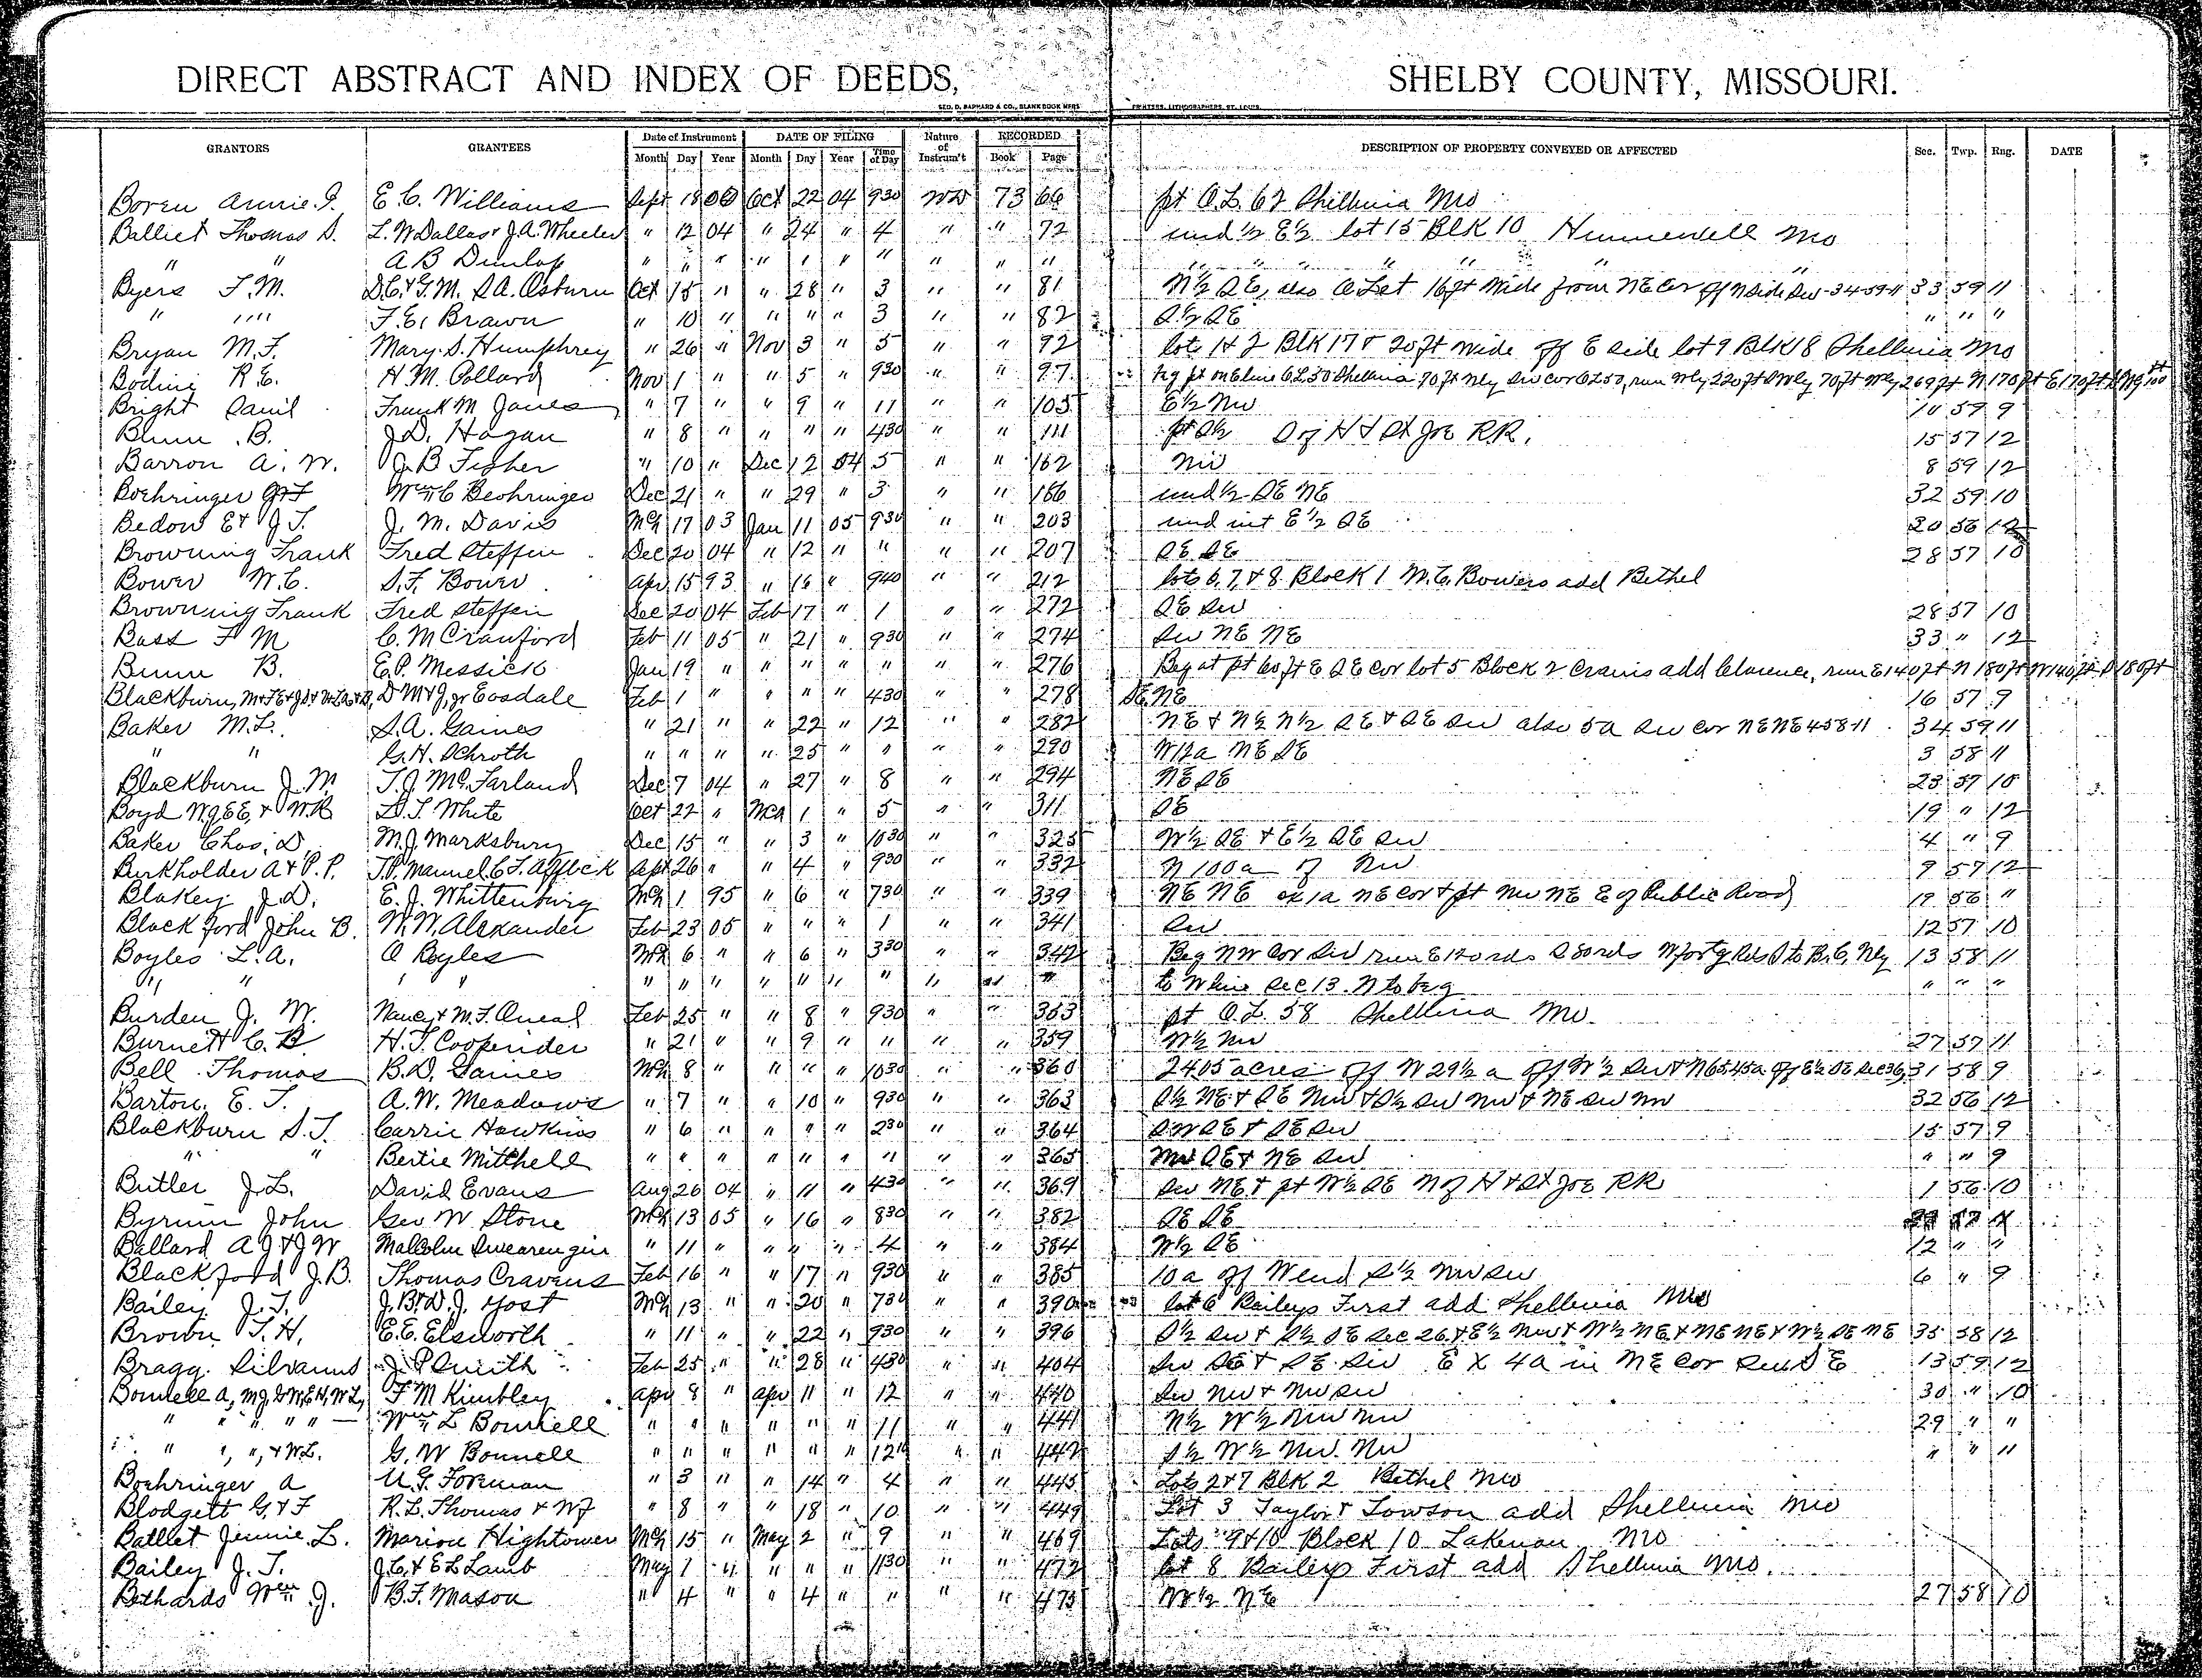 DIRECT ABSTRACT AND INDEX OF DEEDS, SHELBY COUNTY, MISSOURI.
GEO. D. BARNARD & CO., BLANK BOOK MFRS PRINTERS, LITHOGRAPHERS, ST. LOUIS.
GRANTORS GRANTEES Date of Instrument DATE OF FILING Nature of Instrum't RECORDED DESCRIPTION OF PROPERTY CONVEYED OR AFFECTED Sec. Twp. Rng. DATE
Month Day Year Month Day Year Time of Day Book Page
Boren Annie I. E. C. Williams Sept 18 Oct 22 04 930 WD 73 66 pt O.L. 62 Shelbina Mo
Balliet Thomas S. L. W Dallas & J. A. Wheeler " 12 04 " 24 " 4 " " 72 und 1/2 E 1/2 lot 15 Blk 10 Hunnewell Mo
" " A B Dunlap " " " " " " " " " " " " " " " "
Byers F. M. D. C. & G. M. S A. Osburn Oct 15 " " 28 " 3 " " 81 N 1/2 SE, also a Lot 16 ft wide from NE Cor off N side SW 34-59-11 33 59 11
" " " F. E. Brown " 10 " " " " 3 " " 82 S 1/2 SE " " "
Bryan M. F. Mary S. Humphrey " 26 " Nov 3 " 5 " " 92 lots 1 & 2 Blk 17 & 20 ft wide off E side lot 9 Blk 18 Shelbina Mo
Bodine R. E. H. M. Pollard Nov 1 " " 5 " 930 " " 97 Beg pt on E line O L 50 Shelbina 70 ft Nly SW cor O L 50, run Wly 220 ft SWly 70 ft Wly 269 ft N 170 ft E 170 ft
Bright David Frank M Jones " 7 " " 9 " 11 " " 105 E 1/2 NW 10 59 9
Bunn B. J. D. Hagan " 8 " " " " 430 " " 111 pt S 1/2 S of H & St Joe R.R. 15 57 12
Barron A. W. J. B Fisher " 10 " Dec 12 04 5 " " 162 NW 8 59 12
Boehringer G & F Wm C Beohringer Dec 21 " " 29 " 3 " " 186 und 1/2 SE NE 32 59 10
Bedow E & J T. J. M. Davis Mch 17 03 Jan 11 05 930 " " 203 und int E 1/2 SE 20 56 12
Browning Frank Fred Steffin Dec 20 04 " 12 " " " " 207 SE SE 28 57 10
Bower W. C. S. F. Bower Apr 15 93 " 16 " 940 " " 212 lots 6, 7, & 8 Block 1 W. C. Bowers add Bethel
Browning Frank Fred Steffin Dec 20 04 Feb 17 " 1 " " 272 SE SW 28 57 10
Bass F M C. M Crawford Feb 11 05 " 21 " 930 " " 274 SW NE NE 33 " 12
Bunn B. E. P. Messick Jan 19 " " " " " " " 276 Beg at pt 60 ft E SE cor lot 5 Block 2 Crains add Clarence, run E 140 ft N 180 ft W 140 ft S 180 ft
Blackburn, D M & J, Jr Eosdale Feb 1 " " " " 430 " " 278 SE NE 16 57 9
Baker M. L. S. A. Gaines " 21 " " 22 " 12 " " 282 NE & N 1/2 N 1/2 SE & SE SW also 5a SW cor NE NE 4 58-11 34 59 11
" " G. H. Schroth " " " " 25 " " " " 290 W 12a NE SE 3 58 11
Blackburn J. M. T. J. McFarland Dec 7 04 " 27 " 8 " " 294 NE SE 23 57 10
Boyd W. G. E E, & W. R S. T. White Oct 22 " Mch 1 " 5 " " 311 SE 19 " 12
Baker Chas. D. M. J. Marksbury Dec 15 " " 3 " 1030 " " 325 W 1/2 SE & E 1/2 SE SW 4 " 9
Burkholder A & P. P. T. P. Manuel C F. Affleck Sept 26 " " 4 " 930 " " 332 N 100 a of NW 9 57 12
Blakey J. D. E. J. Whittenburg Mch 1 95 " 6 " 730 " " 339 NE NE ex 1a NE cor & pt NW NE E of Public Road 19 56 "
Blackford John B. W. W. Alexander Feb 23 05 " " " 1 " " 341 SW 12 57 10
Boyles L. A. O Boyles Mch 6 " " 6 " 330 " " 342 Beg NW Cor SW run E rds S 80 rds W forty Rds S to B. C. Nly 13 58 11
" " " " " " " " " " " " " " to W line Sec 13. N to beg " " "
Burden J. W. Nancy & M. F. Oneal Feb 25 " " 8 " 930 " " 353 pt O. L. 58 Shelbina Mo.
Burnett C. B. H. T. Coopender " 21 " " 9 " " " " 359 W 1/2 NW 27 57 11
Bell Thomas B. D. Gaines Mch 8 " " " " 1030 " " 360 24.05 acres off N 29 1/2 a off W 1/2 SW & N 65.45a off E 1/2 SE Sec 36, 31 58 9
Barton E. T. A. W. Meadows " 7 " " 10 " 930 " " 363 S 1/2 NE & SE NW & S 1/2 SW NW & NE SW NW 32 56 12
Blackburn S. T. Carrie Hawkins " 6 " " " " 230 " " 364 SW SE & SE SW 15 57 9
" " Bertie Mitchell " " " " " " " " " 365 NW SE & NE SW " " 9
Butler J. L. David Evans Aug 26 04 " 11 " 430 " " 369 SW NE & pt W 1/2 SE N of H & St Joe RR 1 56 10
Byrum John Geo W Stone Mch 13 05 " 16 " 830 " " 382 SE SE
Ballard A J & J W Malcolm Swearengin " 11 " " " " 4 " " 384 W 1/2 SE 12 " "
Blackford J. B. Thomas Cravens Feb 16 " " 17 " 930 " " 385 10 a off W end S 1/2 NW SW 6 " 9
Bailey J. T. J. B & D. J. Yost Mch 13 " " 20 " 730 " " 390 lot 6 Baileys First add Shelbina Mo
Brown T. H. E. E. Elsworth " 11 " " 22 " 930 " " 396 S 1/2 SW & S 1/2 SE Sec 26 & E 1/2 NW & W 1/2 NE & NE NE & W 1/2 SE NE 35 58 12
Bragg Silvanus J. P Smith Feb 25 " " 28 " 430 " " 404 SW SE & SE SW EX 4a in NE Cor SW SE 13 59 12
Bonnell A, M J, G W, E H, W L, F M Kimbley Apr 8 " Apr 11 " 12 " " 440 SW NW & NW SW 30 " 10
" " " " " Wm L Bonnell " " " " " " 11 " " 441 N 1/2 W 1/2 NW NW 29 " "
" " " " & W. L. G. W Bonnell " " " " " " 12 " " 442 S 1/2 W 1/2 NW NW " " "
Boehringer A U. G. Forman " 3 " " 14 " 4 " " 445 Lots 2 & 7 Blk 2 Bethel Mo
Blodgett G & F R. L. Thomas & W J " 8 " " 18 " 10 " " 449 Lot 3 Taylor & Towson add Shelbina Mo
Batlet Jennie L. Marion Hightower Mch 15 " May 2 " 9 " " 469 Lots 9 & 10 Block 10 Lakenan Mo
Bailey J. T. J. C. & E L Lamb May 1 " " " " 1130 " " 472 lot 8 Baileys First add Shelbina Mo.
Bethards Wm J. B. F. Mason " 4 " " 4 " " " " 475 W 1/2 NE 27 58 10